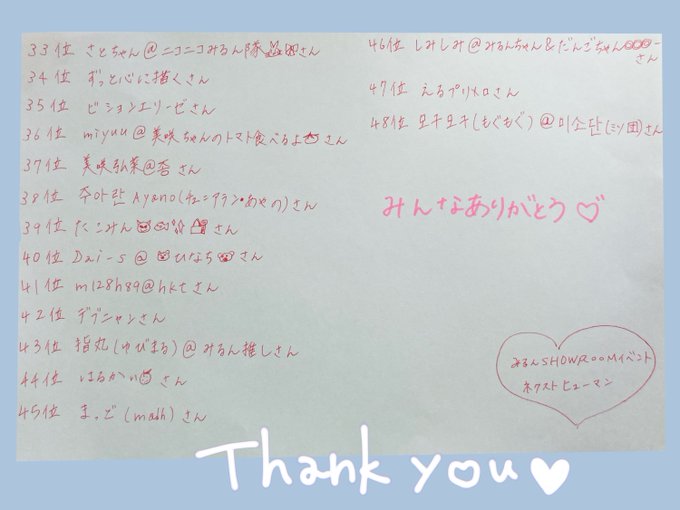 33位 さとちゃん@ニコニコみるん隊さん
34位 ずっと心に描くさん
35位 ビションエリーゼさん
36位 miyuu@美咲ちゃんのトマト食べるよさん
37位 美咲弘菜@杏さん
38位 주아란 Ayano(チュニアラン・あやの)さん
39位 たこみんさん
40位 Dai-s@ひなちさん
41位 m128h89@hktさん
42位 デブニャンさん
43位 指丸(ゆびまる)@みるん推しさん
44位 はるかいさん
45位 まっど(madh)さん
46位 しみしみ@みるんちゃん&だんごちゃんー
さん
47位 えるプリメロさん
48位 모구모구(もぐもぐ)@미소단(ミソ団)さん
みんなありがとう♡
みるんSHOWROOMイベント
ネクストヒューマン
Thank you♥